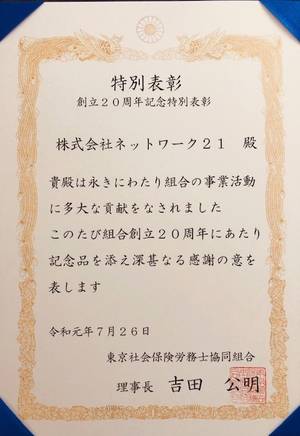 特別表彰
創立２０周年記念特別表彰
株式会社ネットワーク２１　殿
貴殿は永きにわたり組合の事業活動
に多大な貢献をなされました
このたび組合創立２０周年にあたり
記念品を添え深甚なる感謝の意を
表します
令和元年７月２６日
東京社会保険労務士協同組合
理事長　吉田　公明